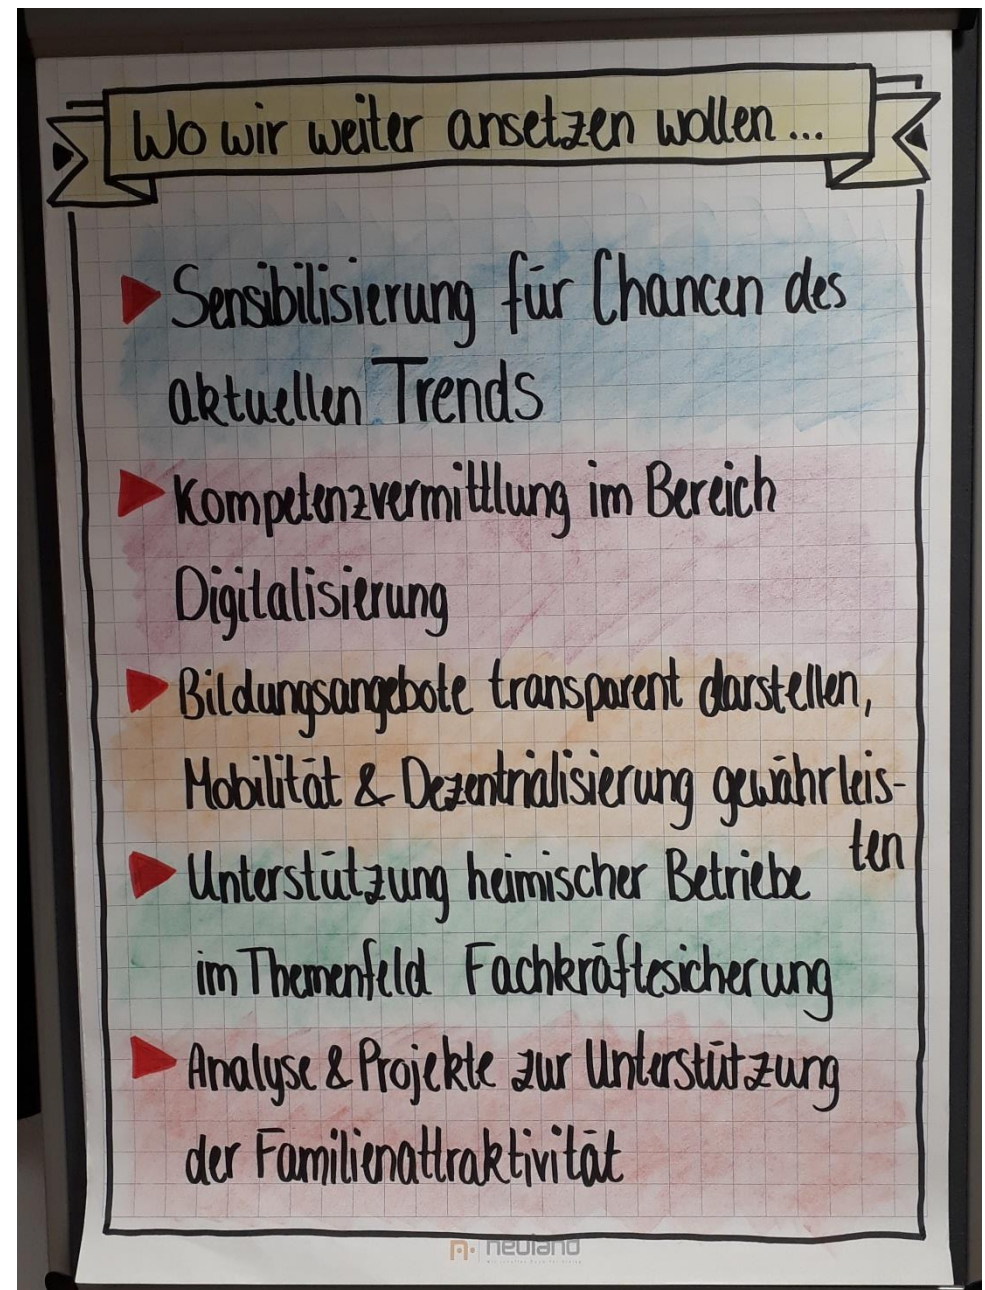 Wo wir weiter ansetzen wollen...
Sensibilisierung für Chancen des
aktuellen Trends
Kompetenzvermittlung im Bereich
Digitalisierung
Bildungsangebote transparent darstellen,
Mobilität & Dezentrialisierung gewährleis-
ten
Unterstützung heimischer Betriebe
im Themenfeld Fachkräftesicherung
Analyse & Projekte zur Unterstützung
der Familienattraktivität
neuland